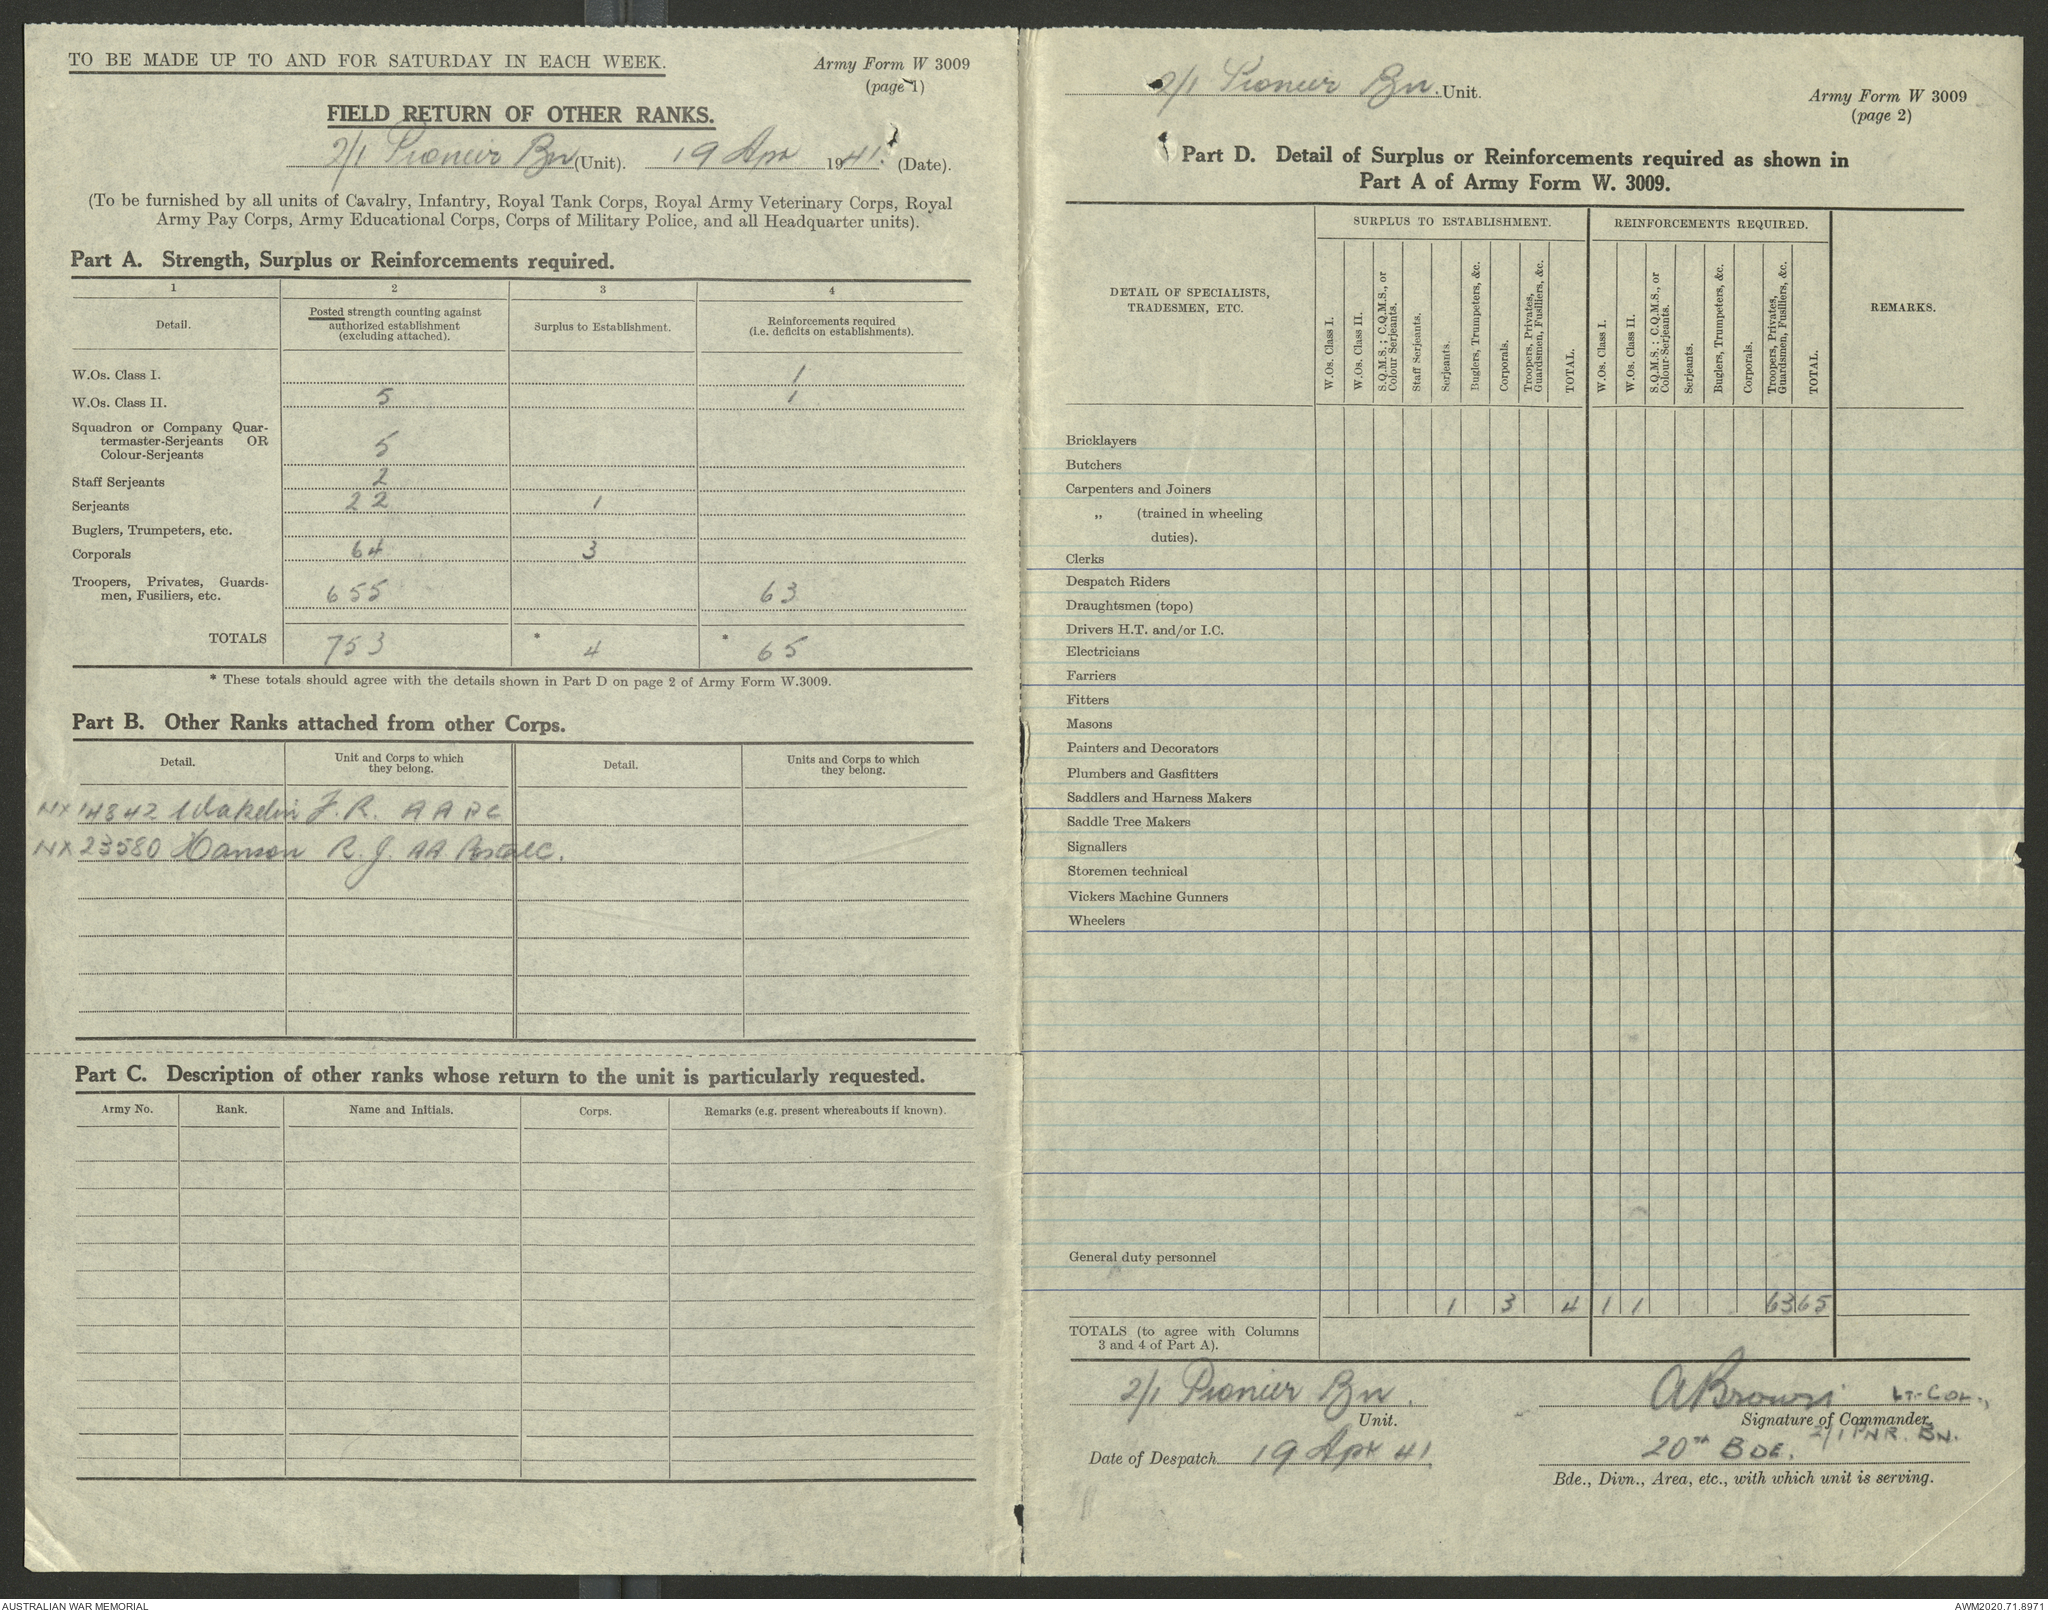 TO BE MADE UP TO AND FOR SATURDAY IN EACH WEEK.
Army Form W 3009
(page 1)
FIELD RETURN OF OTHER RANKS.
2/1 Pioneer Bn (Unit). 19 Apr 1941. (Date).
(To be furnished by all units of Cavalry, Infantry, Royal Tank Corps, Royal Army Veterinary Corps, Royal
Army Pay Corps, Army Educational Corps, Corps of Military Police, and all Headquarter units).
Part A. Strength, Surplus or Reinforcements required.
1 2 3 4
Detail. Posted strength counting against authorized establishment (excluding attached). Surplus to Establishment. Reinforcements required (i.e. deficits on establishments).
W.Os. Class I. 1
W.Os. Class II. 5 1
Squadron or Company Quar-
termaster-Serjeants OR
Colour-Serjeants 5
Staff Serjeants 2
Serjeants 22 1
Buglers, Trumpeters, etc.
Corporals 64 3
Troopers, Privates, Guards-
men, Fusiliers, etc. 655 63
TOTALS 753 * 4 * 65
* These totals should agree with the details shown in Part D on page 2 of Army Form W.3009.
Part B. Other Ranks attached from other Corps.
Detail. Unit and Corps to which they belong. Detail. Units and Corps to which they belong.
NX 14842 Wakelin F.R. A A P C
NX 23580 Hanson R. J. AA Postal C.
Part C. Description of other ranks whose return to the unit is particularly requested.
Army No. Rank. Name and Initials. Corps. Remarks (e.g. present whereabouts if known).
2/1 Pioneer Bn. Unit.
Army Form W 3009
(page 2)
Part D. Detail of Surplus or Reinforcements required as shown in
Part A of Army Form W. 3009.
DETAIL OF SPECIALISTS, TRADESMEN, ETC.
SURPLUS TO ESTABLISHMENT.
W.Os. Class I.
W.Os. Class II.
S.Q.M.S.; C.Q.M.S., or Colour Serjeants.
Staff Serjeants.
Serjeants.
Buglers, Trumpeters, &c.
Corporals.
Troopers, Privates, Guardsmen, Fusiliers, &c.
TOTAL.
REINFORCEMENTS REQUIRED.
W.Os. Class I.
W.Os. Class II.
S.Q.M.S.; C.Q.M.S., or Colour-Serjeants.
Serjeants.
Buglers, Trumpeters, &c.
Corporals.
Troopers, Privates, Guardsmen, Fusiliers, &c.
TOTAL.
REMARKS.
Bricklayers
Butchers
Carpenters and Joiners
„ (trained in wheeling
duties).
Clerks
Despatch Riders
Draughtsmen (topo)
Drivers H.T. and/or I.C.
Electricians
Farriers
Fitters
Masons
Painters and Decorators
Plumbers and Gasfitters
Saddlers and Harness Makers
Saddle Tree Makers
Signallers
Storemen technical
Vickers Machine Gunners
Wheelers
General duty personnel
1 3 4 1 1 63 65
TOTALS (to agree with Columns
3 and 4 of Part A).
2/1 Pionier Bn.
Unit.
Date of Despatch 19 Apr 41
A Brown Lt-Col.,
Signature of Commander.
2/1 PNR. BN.
20th BDE.
Bde., Divn., Area, etc., with which unit is serving.
AUSTRALIAN WAR MEMORIAL
AWM2020.71.8971